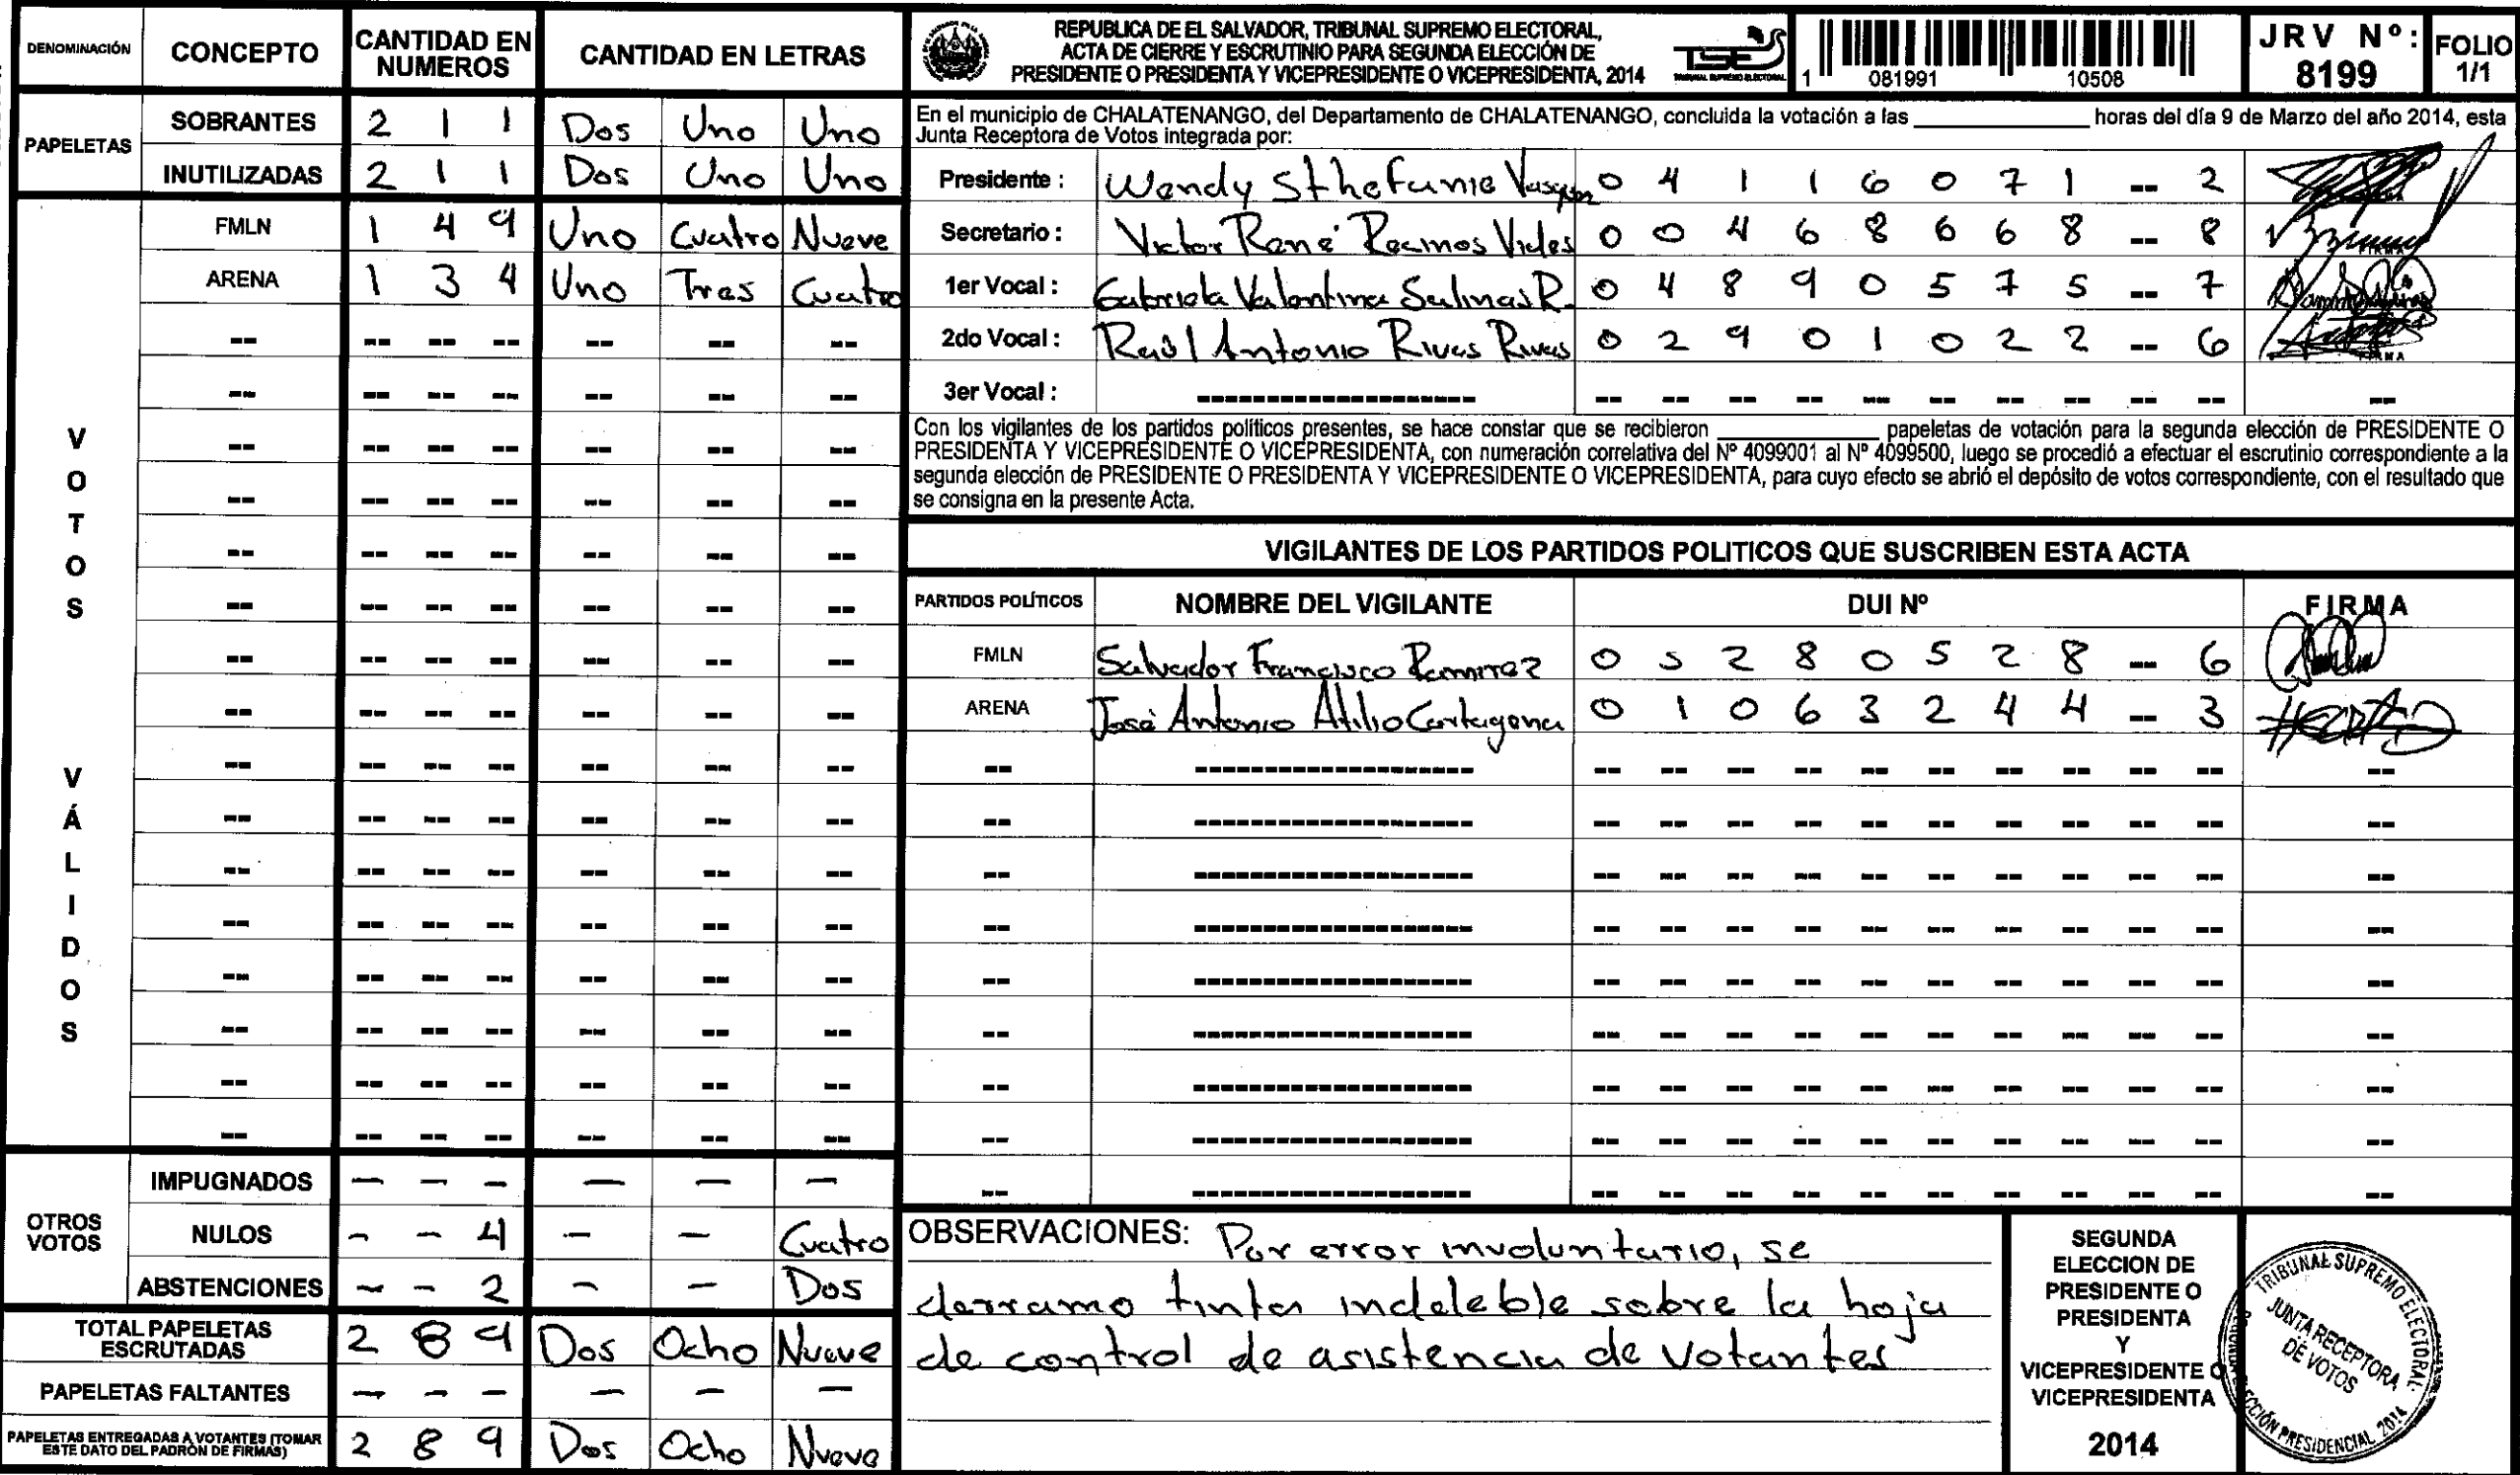 DENOMINACIÓN CONCEPTO CANTIDAD EN NUMEROS CANTIDAD EN LETRAS
PAPELETAS
SOBRANTES 2 1 1 Dos Uno Uno
INUTILIZADAS 2 1 1 Dos Uno Uno
VOTOS VÁLIDOS
FMLN 1 4 9 Uno Cuatro Nueve
ARENA 1 3 4 Uno Tres Cuatro
OTROS VOTOS
IMPUGNADOS — — — — — —
NULOS - - 4 — — Cuatro
ABSTENCIONES - - 2 - - Dos
TOTAL PAPELETAS ESCRUTADAS 2 8 9 Dos Ocho Nueve
PAPELETAS FALTANTES - - - - - -
PAPELETAS ENTREGADAS A VOTANTES (TOMAR ESTE DATO DEL PADRÓN DE FIRMAS) 2 8 9 Dos Ocho Nueve
REPUBLICA DE EL SALVADOR, TRIBUNAL SUPREMO ELECTORAL,
ACTA DE CIERRE Y ESCRUTINIO PARA SEGUNDA ELECCIÓN DE
PRESIDENTE O PRESIDENTA Y VICEPRESIDENTE O VICEPRESIDENTA, 2014
TSE
TRIBUNAL SUPREMO ELECTORAL
1 081991 10508
JRV Nº: 8199
FOLIO 1/1
En el municipio de CHALATENANGO, del Departamento de CHALATENANGO, concluida la votación a las ____________ horas del día 9 de Marzo del año 2014, esta
Junta Receptora de Votos integrada por:
Presidente : Wendy Sthefanie Vasquez 0 4 1 1 6 0 7 1 -- 2
Secretario : Victor René Recinos Vides 0 0 4 6 8 6 6 8 -- 8
1er Vocal : Gabriela Valentina Salinas R. 0 4 8 9 0 5 7 5 -- 7
2do Vocal : Raúl Antonio Rivas Rivas 0 2 9 0 1 0 2 2 -- 6
3er Vocal :
Con los vigilantes de los partidos políticos presentes, se hace constar que se recibieron ____________ papeletas de votación para la segunda elección de PRESIDENTE O
PRESIDENTA Y VICEPRESIDENTE O VICEPRESIDENTA, con numeración correlativa del Nº 4099001 al Nº 4099500, luego se procedió a efectuar el escrutinio correspondiente a la
segunda elección de PRESIDENTE O PRESIDENTA Y VICEPRESIDENTE O VICEPRESIDENTA, para cuyo efecto se abrió el depósito de votos correspondiente, con el resultado que
se consigna en la presente Acta.
VIGILANTES DE LOS PARTIDOS POLITICOS QUE SUSCRIBEN ESTA ACTA
PARTIDOS POLÍTICOS NOMBRE DEL VIGILANTE DUI Nº FIRMA
FMLN Salvador Francisco Ramirez 0 5 2 8 0 5 2 8 -- 6
ARENA José Antonio Atilio Cartagena 0 1 0 6 3 2 4 4 -- 3
OBSERVACIONES: Por error involuntario, se
derramo tinta indeleble sobre la hoja
de control de asistencia de votantes
SEGUNDA
ELECCION DE
PRESIDENTE O
PRESIDENTA
Y
VICEPRESIDENTE O
VICEPRESIDENTA
2014
TRIBUNAL SUPREMO ELECTORAL
JUNTA RECEPTORA
DE VOTOS
ELECCIÓN PRESIDENCIAL 2014